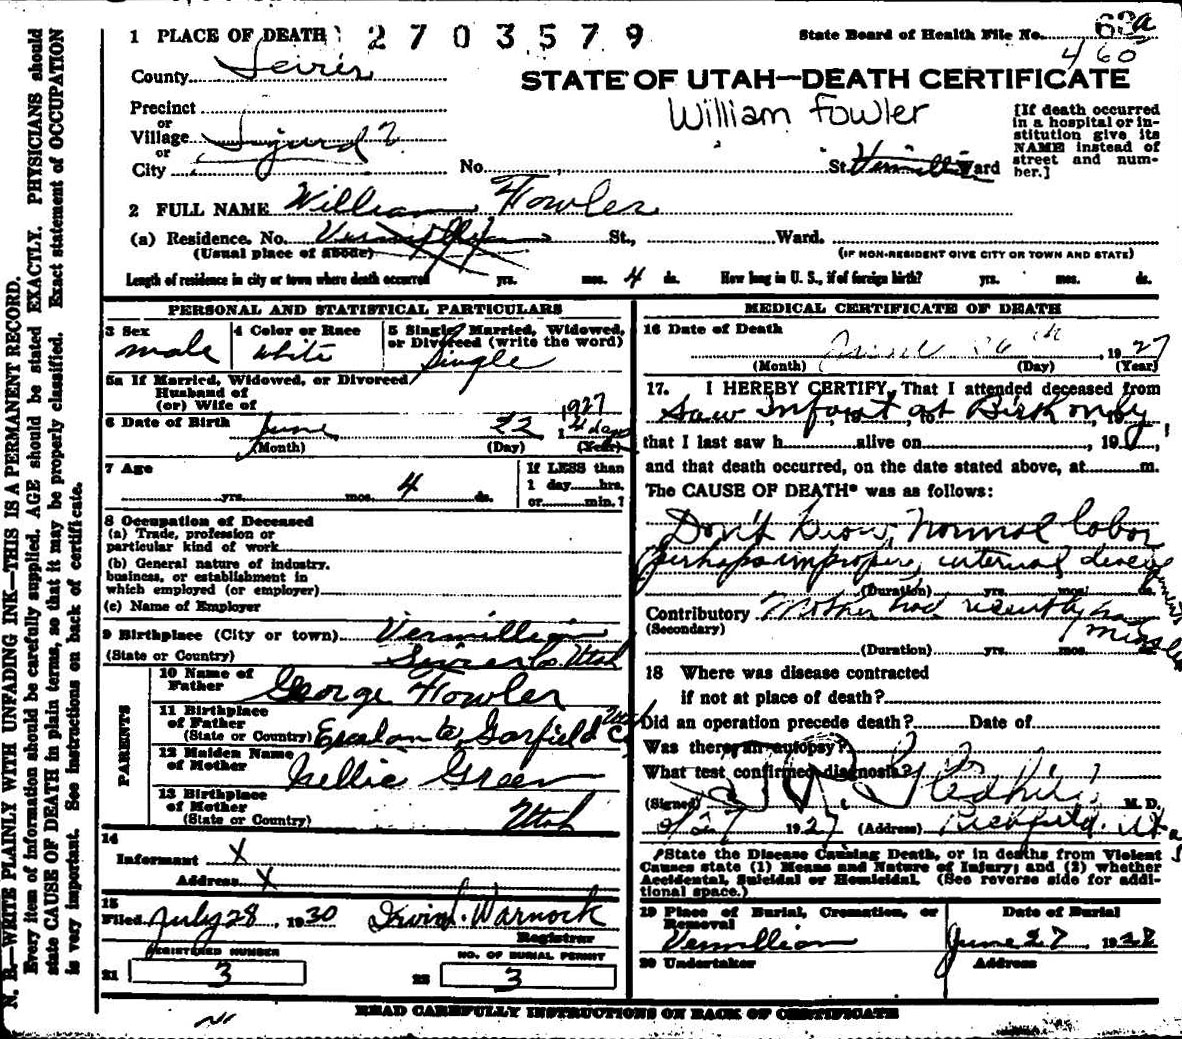 1 PLACE OF DEATH 2703579 State Board of Health File No. 63a
460
County Sevier
STATE OF UTAH—DEATH CERTIFICATE
William Fowler
Precinct
or
Village Sigurd ?
or
City
No. St. Ward
[If death occurred
in a hospital or in-
stitution give its
NAME instead of
street and num-
ber.]
2 FULL NAME William Fowler
(a) Residence. No. St., Ward.
(Usual place of abode) (IF NON-RESIDENT GIVE CITY OR TOWN AND STATE)
Length of residence in city or town where death occurred yrs. mos. 4 ds. How long in U. S., if of foreign birth? yrs. mos. ds.
PERSONAL AND STATISTICAL PARTICULARS
3 Sex 4 Color or Race 5 Single, Married, Widowed,
or Divorced (write the word)
male white Single
5a If Married, Widowed, or Divorced
Husband of
(or) Wife of
1927
6 Date of Birth June 22 1 4 days
(Month) (Day) (Year)
7 Age If LESS than
1 day hrs.
yrs. mos. 4 ds. or min.?
8 Occupation of Deceased
(a) Trade, profession or
particular kind of work
(b) General nature of industry,
business, or establishment in
which employed (or employer)
(c) Name of Employer
9 Birthplace (City or town) Vermillion
(State or Country) Sevier Co. Utah
PARENTS
10 Name of
Father George Fowler
11 Birthplace
of Father
(State or Country) Escalante, Garfield Co Utah
12 Maiden Name
of Mother Nellie Green
13 Birthplace
of Mother
(State or Country) Utah
14
Informant X
Address X
15
Filed July 28, 1930 Irvin L. Warnock
Registrar
REGISTERED NUMBER NO. OF BURIAL PERMIT
21 3 22 3
MEDICAL CERTIFICATE OF DEATH
16 Date of Death
June 26th, 1927
(Month) (Day) (Year)
17. I HEREBY CERTIFY, That I attended deceased from
Saw Infant at Birth only
that I last saw h alive on , 19
and that death occurred, on the date stated above, at m.
The CAUSE OF DEATH* was as follows:
Don't know, Normal labor
perhaps improper internal
(Duration) yrs. mos. ds.
Contributory Mother had recently had
(Secondary) measles
(Duration) yrs. mos. ds.
18 Where was disease contracted
if not at place of death?
Did an operation precede death? Date of
Was there an autopsy?
What test confirmed diagnosis?
(Signed) M. D.
1927 (Address) Richfield, Utah
*State the Disease Causing Death, or in deaths from Violent
Causes state (1) Means and Nature of Injury; and (2) whether
Accidental, Suicidal or Homicidal. (See reverse side for addi-
tional space.)
19 Place of Burial, Cremation, or Date of Burial
Removal
Vermillion June 27, 1928
20 Undertaker Address
READ CAREFULLY INSTRUCTIONS ON BACK OF CERTIFICATE
N. B.—WRITE PLAINLY WITH UNFADING INK—THIS IS A PERMANENT RECORD.
Every item of information should be carefully supplied. AGE should be stated EXACTLY. PHYSICIANS should
state CAUSE OF DEATH in plain terms, so that it may be properly classified. Exact statement of OCCUPATION
is very important. See instructions on back of certificate.